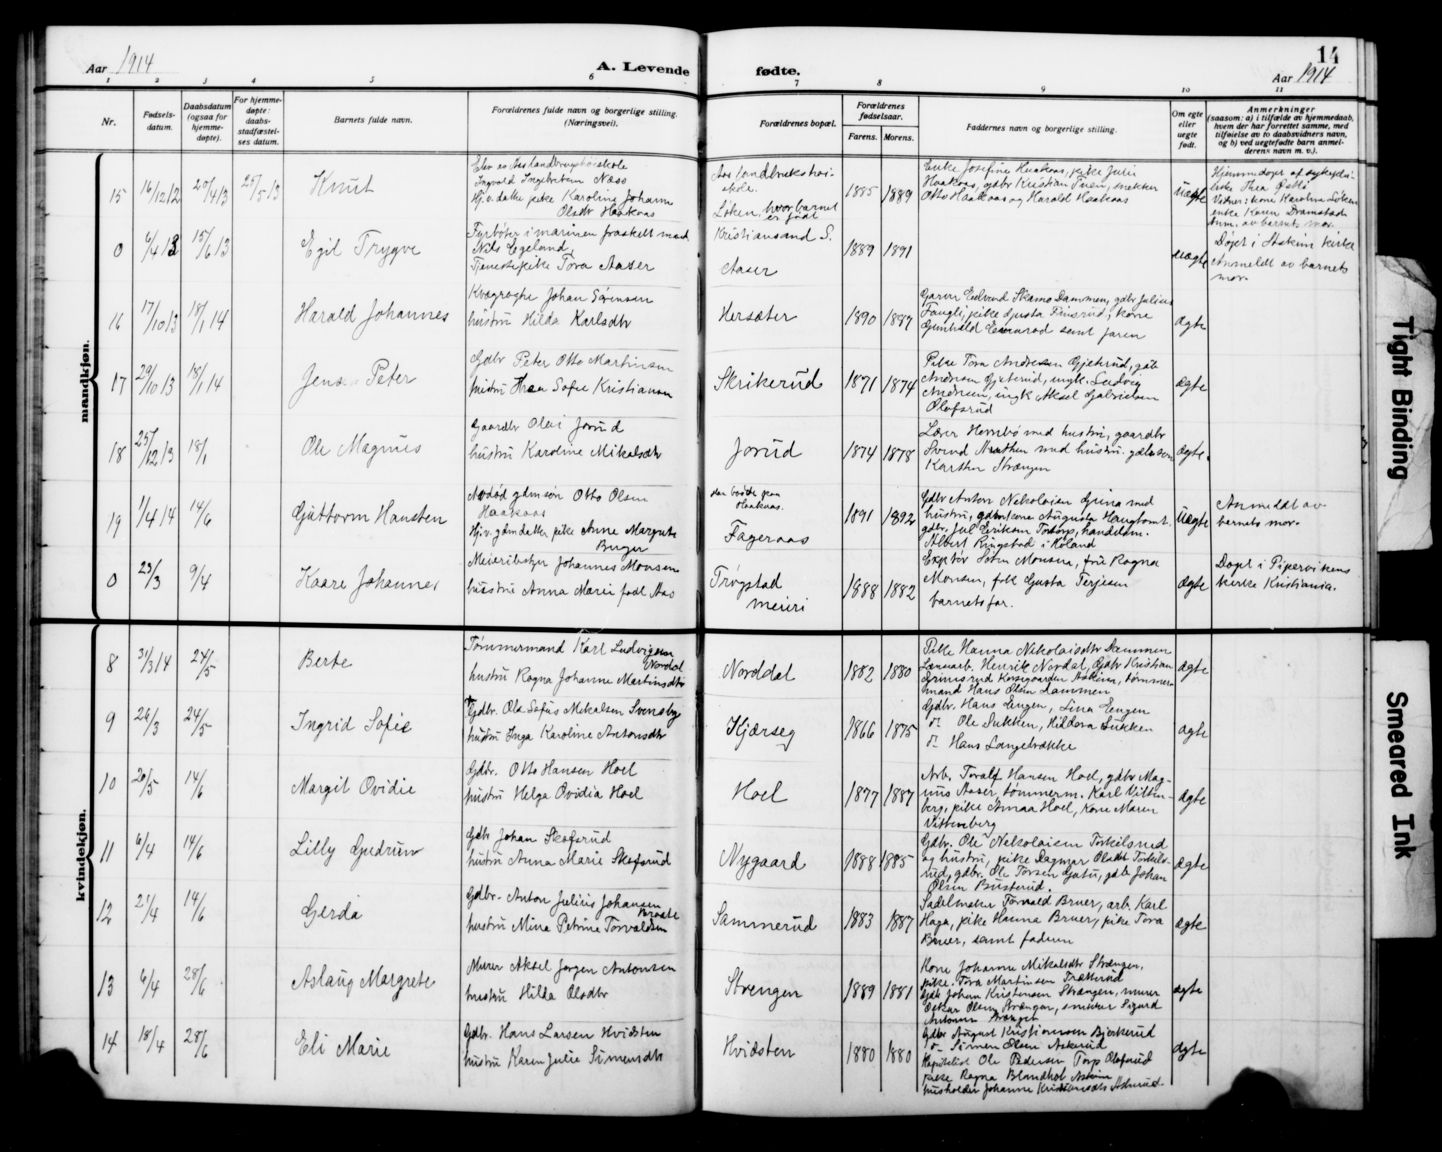 14
Aar 1914
A. Levende fødte.
Aar 1914
1 2 3 4 5 6 7 8 9 10 11
Nr.
Fødsels-
datum.
Daabsdatum
(ogsaa for
hjemme-
døpte).
For hjemme-
døpte:
daabs-
stadfæstel-
ses datum.
Barnets fulde navn.
Forældrenes fulde navn og borgerlige stilling.
(Næringsvei).
Forældrenes bopæl.
Forældrenes
fødselsaar.
Farens. Morens.
Faddernes navn og borgerlige stilling.
Om egte
eller
uegte
født.
Anmerkninger
(saasom: a) i tilfælde av hjemmedaab,
hvem der har forrettet samme, med
tilføielse av to daabsvidners navn,
og b) ved uegtefødte barn anmel-
derens navn m. v.).
mandkjøn.
15 16/12 12 20/4 13 25/5 13 Knut
Elev es Aas landbrukshøiskole
Ingvald Ingebretsen Næss
Hj.v. datter pike Karoline Johanne
Olsdtr Haakaas
Aas landbrukshøi-
skole.
Løken, hvor barnet
er født
1885 1889
Enke Josefine Haakaas, pike Julie
Haakaas, gdbr Kristian Tusen, snekker
Otto Haakaas og Harald Haakaas
uægte
Hjemmedøpt af sykepleierske Thea
Vidner: kone Karoline Løken
enke Karen Dramstad
Anm. av barnets mor.
0 6/4 13 15/6 13 Egil Trygve
Fyrbøter i marinen fraskilt mand
Nils Egeland
Tjenestepike Tora Aaser
Kristiansand S.
Aaser
1889 1891
uægte
Døpt i Askim kirke
Anmeldt av barnets
mor.
16 17/10 13 18/1 14 Harald Johannes
Kvægrøgte Johan Sørensen
hustru Hilda Karlsdtr
Hersæter
1890 1887
Garver Edvard Skamo Dammen, gdbr Julius
Fangli, pike Gusta Finsrud, kone
Gunhild samt faren
ægte
17 29/10 13 18/1 14 Jens Peter
Gdbr Peter Otto Martinsen
hustru Thea Sofie Kristiansen
Skrikerud
1871 1874
Pike Tora Andresen Gjeterud, gdb
Andreas Gjeterud, ungk. Ludvig
Andresen, ungk. Aksel Gabrielsen
Olafsrud
ægte
18 25/12 13 18/1 Ole Magnus
Gaardbr Olai Jorud
hustru Karoline Mikalsdtr
Jorud
1874 1878
Lærer Hernbø med hustru, gaardbr
Svend med hustru, gdbrsøn
Karsten Strængen
ægte.
19 1/4 14 14/6 Guttorm Hansten
Avdød gdmsøn Otto Olsen
Haakaas
Hj.v. gdm datter pike Anne Margrete
Burger
den bodde paa
Haakaas.
Fageraas
1891 1892
Gdbr Anton Nikolaisen Grina med
hustru, gdbr kone Augusta Haugtomt.
gdbr. Jul Eriksen Totorp, handelsm.
Albert Ringstad i Høland
uægte
Anmeldt av
barnets mor.
0 23/3 9/4 Kaare Johannes
Meieribestyr Johannes Monsen
hustru Anna Marie født Aas
Trøgstad
meieri
1888 1882
Monsen, fru Ragna
Monsen, frk Gusta Terjesen
barnets far.
ægte
Døpt i Pipervikens
kirke Kristiania.
kvindekjøn.
8 31/3 14 24/5 Berte
Tømmermand Karl Ludvigsen
Norddal
hustru Ragna Johanne Martinsdtr
Norddal
1882 1880
Pike Hanna Nikolaisdtr Dammen
Landarb. Henrik Nordal, Gdbr Kristian
Grimsrud Korsgaarden Askim, tømmer-
mand Hans Olsen Dammen
ægte
9 26/3 24/5 Ingrid Sofie
Gdbr. Ole Sofus Mikalsen Svenseby
hustru Inga Karoline Antonsdtr
Kjærseg
1866 1875
Gdbr. Hans Engen, Lina Engen
do Ole Sukken, Hildora Sukken
do Hans Langebrække
ægte
10 20/5 14/6 Margit Ovidie
Gdbr. Otto Hansen Hoel
hustru Helga Ovidia Hoel
Hoel
1877 1887
Arb. Toralf Hansen Hoel, gdbr Mag-
nus Aaser, tømmerm. Karl Vitten-
berg, pike Anna Hoel, Kone Maren
Vittenberg
ægte
11 6/4 14/6 Lilly Gudrun
Gdbr Johan Skofsrud
hustru Anna Marie Skofsrud
Nygaard
1888 1885
Gdbr. Ole Nikolaisen Torkelsrud
og hustru, pike Dagmar Olsdtr Torkels-
rud, gdbr. Ole Torsen Gutu, gdb Johan
Olsen Busterud.
ægte
12 21/4 14/6 Gerda
Gdbr. Anton Julius Johansen
Braate
hustru Mina Petrine Torvaldsen
Sammerud
1883 1887
Sadelmaker Torvald Bruer, arb. Karl
Haga, pike Hanna Bruer, pike Tora
Bruer, samt faderen
ægte
13 6/4 28/6 Aslaug Margrete
Murer Aksel Jørgen Antonsen
hustru Hilda Olsdtr
Strengen
1889 1881
Kone Johanne Mikalsdtr Strængen,
pike Tora Martinsen Trætterud
Gdb Johan Kristensen Strængen, murer
Oskar Olsen Strængen, snekker Sigurd
Antonsen Strængen
ægte
14 18/4 28/6 Eli Marie
Gdbr. Hans Larsen Hvidsten
hustru Karen Julie Simensdtr
Hvidsten
1880 1880
Gdbr August Kristiansen Bjerkerud
do Simen Olsen Askerud
Kapitelist Ole Pedersen Torp Olafsrud
pike Ragna Blandhol Askim
husholder Johanne Kristiansdtr Askerud
ægte
Tight Binding
Smeared Ink